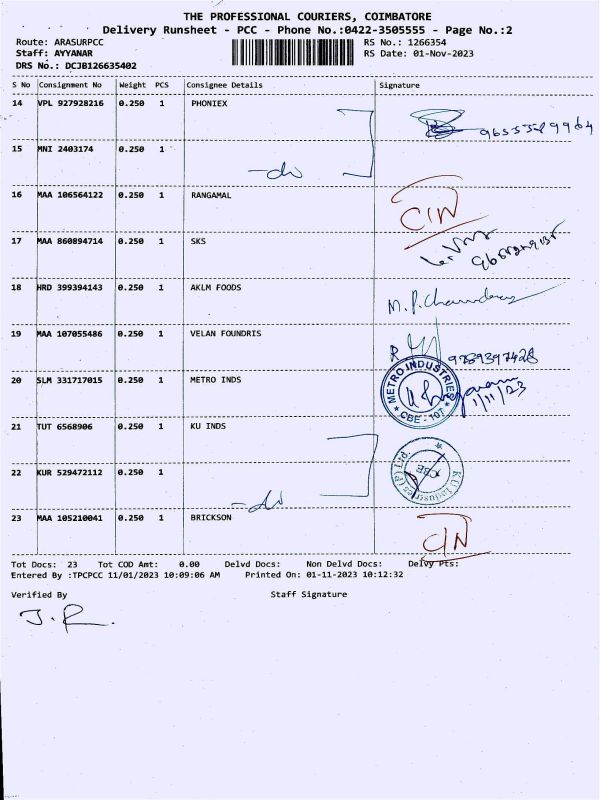 THE PROFESSIONAL COURIERS, COIMBATORE
Delivery Runsheet - PCC - Phone No.:0422-3505555 - Page No.:2
Route: ARASURPCC RS No.: 1266354
Staff: AYYANAR RS Date: 01-Nov-2023
DRS No.: DCJB126635402
S No Consignment No Weight PCS Consignee Details Signature
14 VPL 927928216 0.250 1 PHONIEX
15 MNI 2403174 0.250 1
16 MAA 106564122 0.250 1 RANGAMAL C/N
17 MAA 860894714 0.250 1 SKS
18 HRD 399394143 0.250 1 AKLM FOODS
19 MAA 107055486 0.250 1 VELAN FOUNDRIS 9789397428
20 SLM 331717015 0.250 1 METRO INDS METRO INDUSTRIES CBE - 107 1/11/23
21 TUT 6568906 0.250 1 KU INDS
22 KUR 529472112 0.250 1
23 MAA 105210041 0.250 1 BRICKSON C/N
Tot Docs: 23 Tot COD Amt: 0.00 Delvd Docs: Non Delvd Docs: Delvy Pts:
Entered By :TPCPCC 11/01/2023 10:09:06 AM Printed On: 01-11-2023 10:12:32
Verified By Staff Signature
J.R.